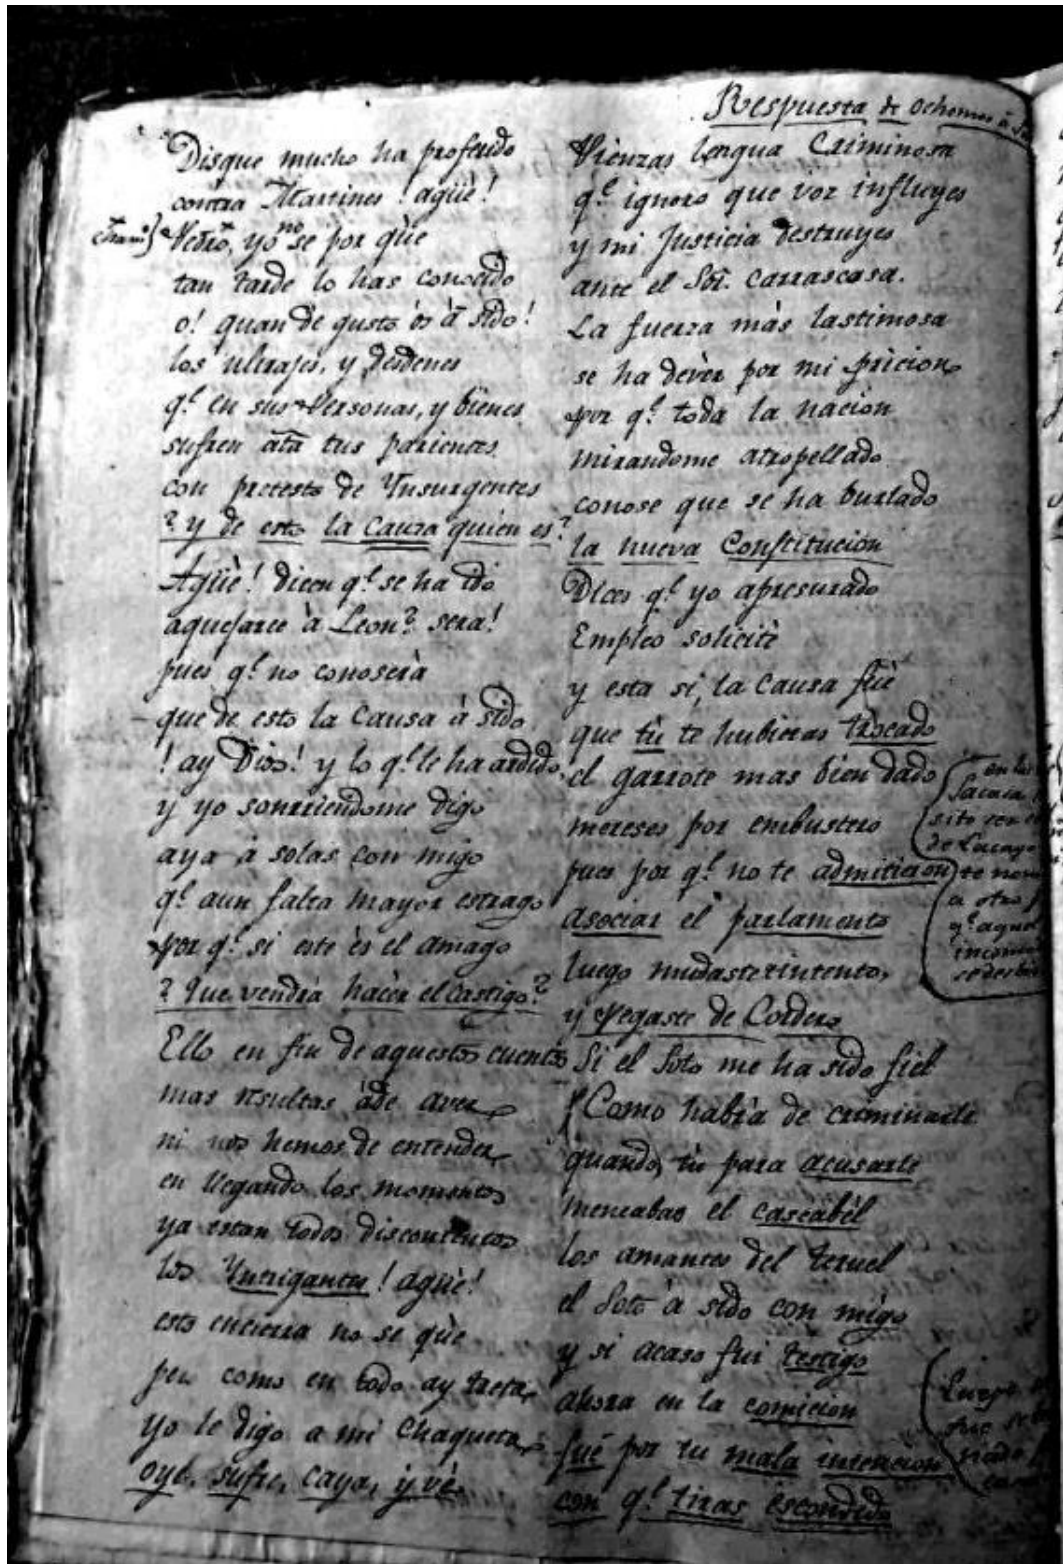 Disque mucho ha proferido
contra Martines! agüè!
yo no se por què
tan tarde lo has conocido
o! quan de gusto òs à sido!
los ultrajes, y desdenes
q.e en sus Personas, y bienes
sufren tus parientes
con pretesto de Ynsurgentes
? y de esto la Causa quien es?
Agüè! dicen q.e se ha ido
aquejarce à Leon? sera!
pues q.e no conoserà
que de esto la Causa à sido
! ay Dios! y lo q.e le ha ardido,
y yo sonrriendome digo
aya à solas con migo
q.e aun falta mayor estrago
por q.e si este ès el amago
? Que vendrà hacèr el Castigo?
Ello en fin de aquestos cuentos
mas resultas àde aver
ni nos hemos de entender
en llegando los momentos
ya estan todos discontentos
los Yntrigantes! agüè!
esto encierra no se què
pero como en todo ay treta
Yo le digo a mi Chaqueta
oye, sufre, caya, y vè.
Respuesta de Ochomos à
Lengua Criminosa
q.e ignoro que voz influyes
y mi Justicia destruyes
ante el Sõr. Carrascosa.
La fuerza màs lastimosa
se ha devèr por mi pricion
por q.e toda la nacion
mirandome atropellado
conose que se ha burlado
la nueva Constitucion
Dices q.e yo apresurado
Empleo solicitè
y esta si, la Causa fuè
que tù te hubieras trocado
el garrote mas bien dado
mereses por embustero
pues por q.e no te admiticion
asociar el parlamento
luego mudaste intento,
y Pegaste de Cordero
Si el Soto me ha sido fiel
Como habìa de criminarle
quando, tù para acusarle
meneabas el cascabèl
los amantes del Teruel
el Soto à sido con migo
y si acaso fui testigo
ahora en la comicion
fuè por tu mala intencion
con q.e tiras escondido
en las
de Lucayo
te nom
a otro
q.e aquel
Luego